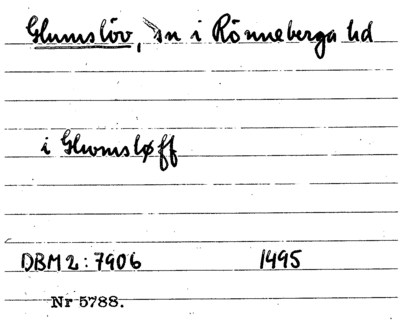 Glumslöv, sn i Rönneberga hd
i Glwomsløff
DBM 2:7906 1495
Nr 5788.